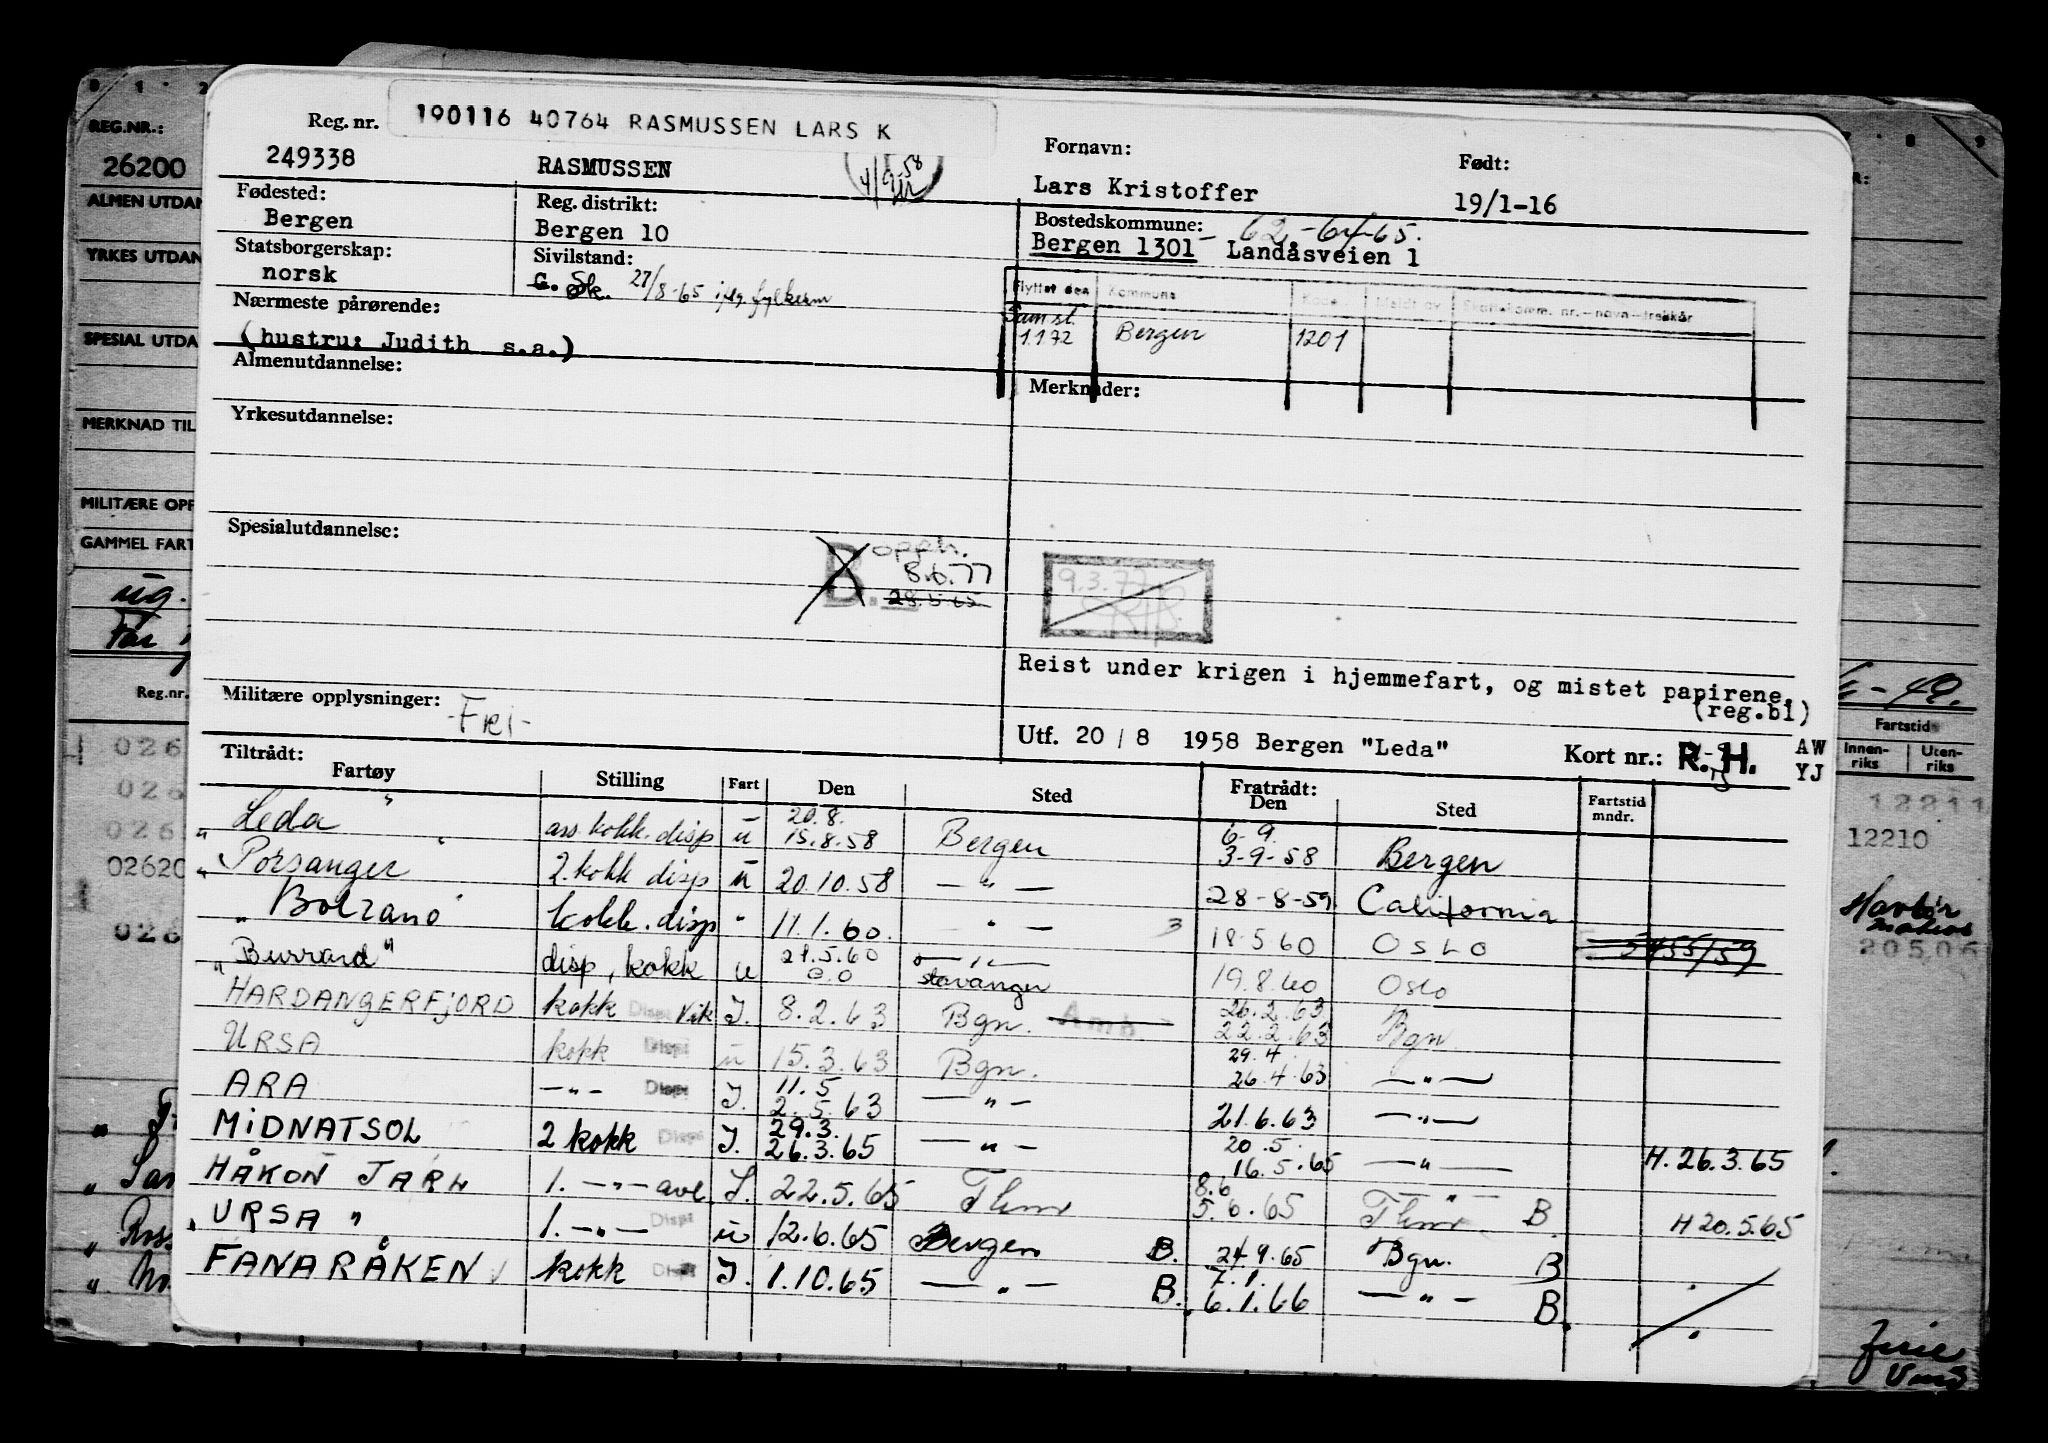 190116 40764 RASMUSSEN LARS K
Reg. nr.
249338
RASMUSSEN
4/9-58
Fornavn:
Lars Kristoffer
Født:
19/1-16
Fødested:
Bergen
Reg. distrikt:
Bergen 10
Bostedskommune: 62-64-65.
Bergen 1301 - Landåsveien 1
Statsborgerskap:
norsk
Sivilstand:
G. Sk. 27/8-65
Flyttet den Kommune Kode Meldt av Skattekomm. nr.-navn-trekkår
Nærmeste pårørende:
(hustru: Judith s.a.)
1.1 72 Bergen 1201
Almenutdannelse:
Merknader:
Yrkesutdannelse:
Spesialutdannelse:
B. opph.
8.6.77
28.5.65
9.3.77
Reist under krigen i hjemmefart, og mistet papirene.
(reg.bl)
Militære opplysninger: -Fri-
Utf. 20 / 8 1958 Bergen "Leda" Kort nr.: R. H. AW
YJ
Tiltrådt:
Fartøy Stilling Fart Den Sted Fratrådt: Den Sted Fartstid mndr.
"Leda" ass. kokk. disp u 20.8. 15.8.58 Bergen 6-9. 3-9-58 Bergen
"Porsanger" 2. kokk disp u 20.10.58 — " — 28-8-59 California
"Bolzano" kokk. disp " 11.1.60. " — 18.5.60 OSLO
"Burrard" disp, kokk u 21.5.60 — " — stavanger 19.8.60 Oslo
HARDANGERFJORD kokk Disp Vik I. 8.2.63 Bgn. Amb 26.2.63 22.2.63 Bgn.
URSA kokk Disp u 15.3.63 Bgn. 29.4. 26.4.63 — " —
ARA — " — Disp I. 11.5 2.5.63 — " — 21.6.63 — " —
MIDNATSOL 2 kokk Disp I. 29.3. 26.3.65 — " — 20.5. 16.5.65 — " — H. 26.3.65
HÅKON JARL 1. — " — avl I. 22.5.65 Thm 8.6 5.6.65 Thm B H 20.5.65
"URSA" 1. — " — Disp u 12.6.65 Bergen B. 24.9.65 Bgn. B
FANARÅKEN kokk Disp I. 1.10.65 — " — B. 7.1. 6.1.66 — " — B
REG.NR.:
26200
ALMEN UTDAN
YRKES UTDAN
SPESIAL UTDA
MERKNAD TIL
MILITÆRE OPP
GAMMEL FART
ug.
Reg.nr.
026
026
026
02620
026
Fartstid
Innenriks Utenriks
12211
12210
20506